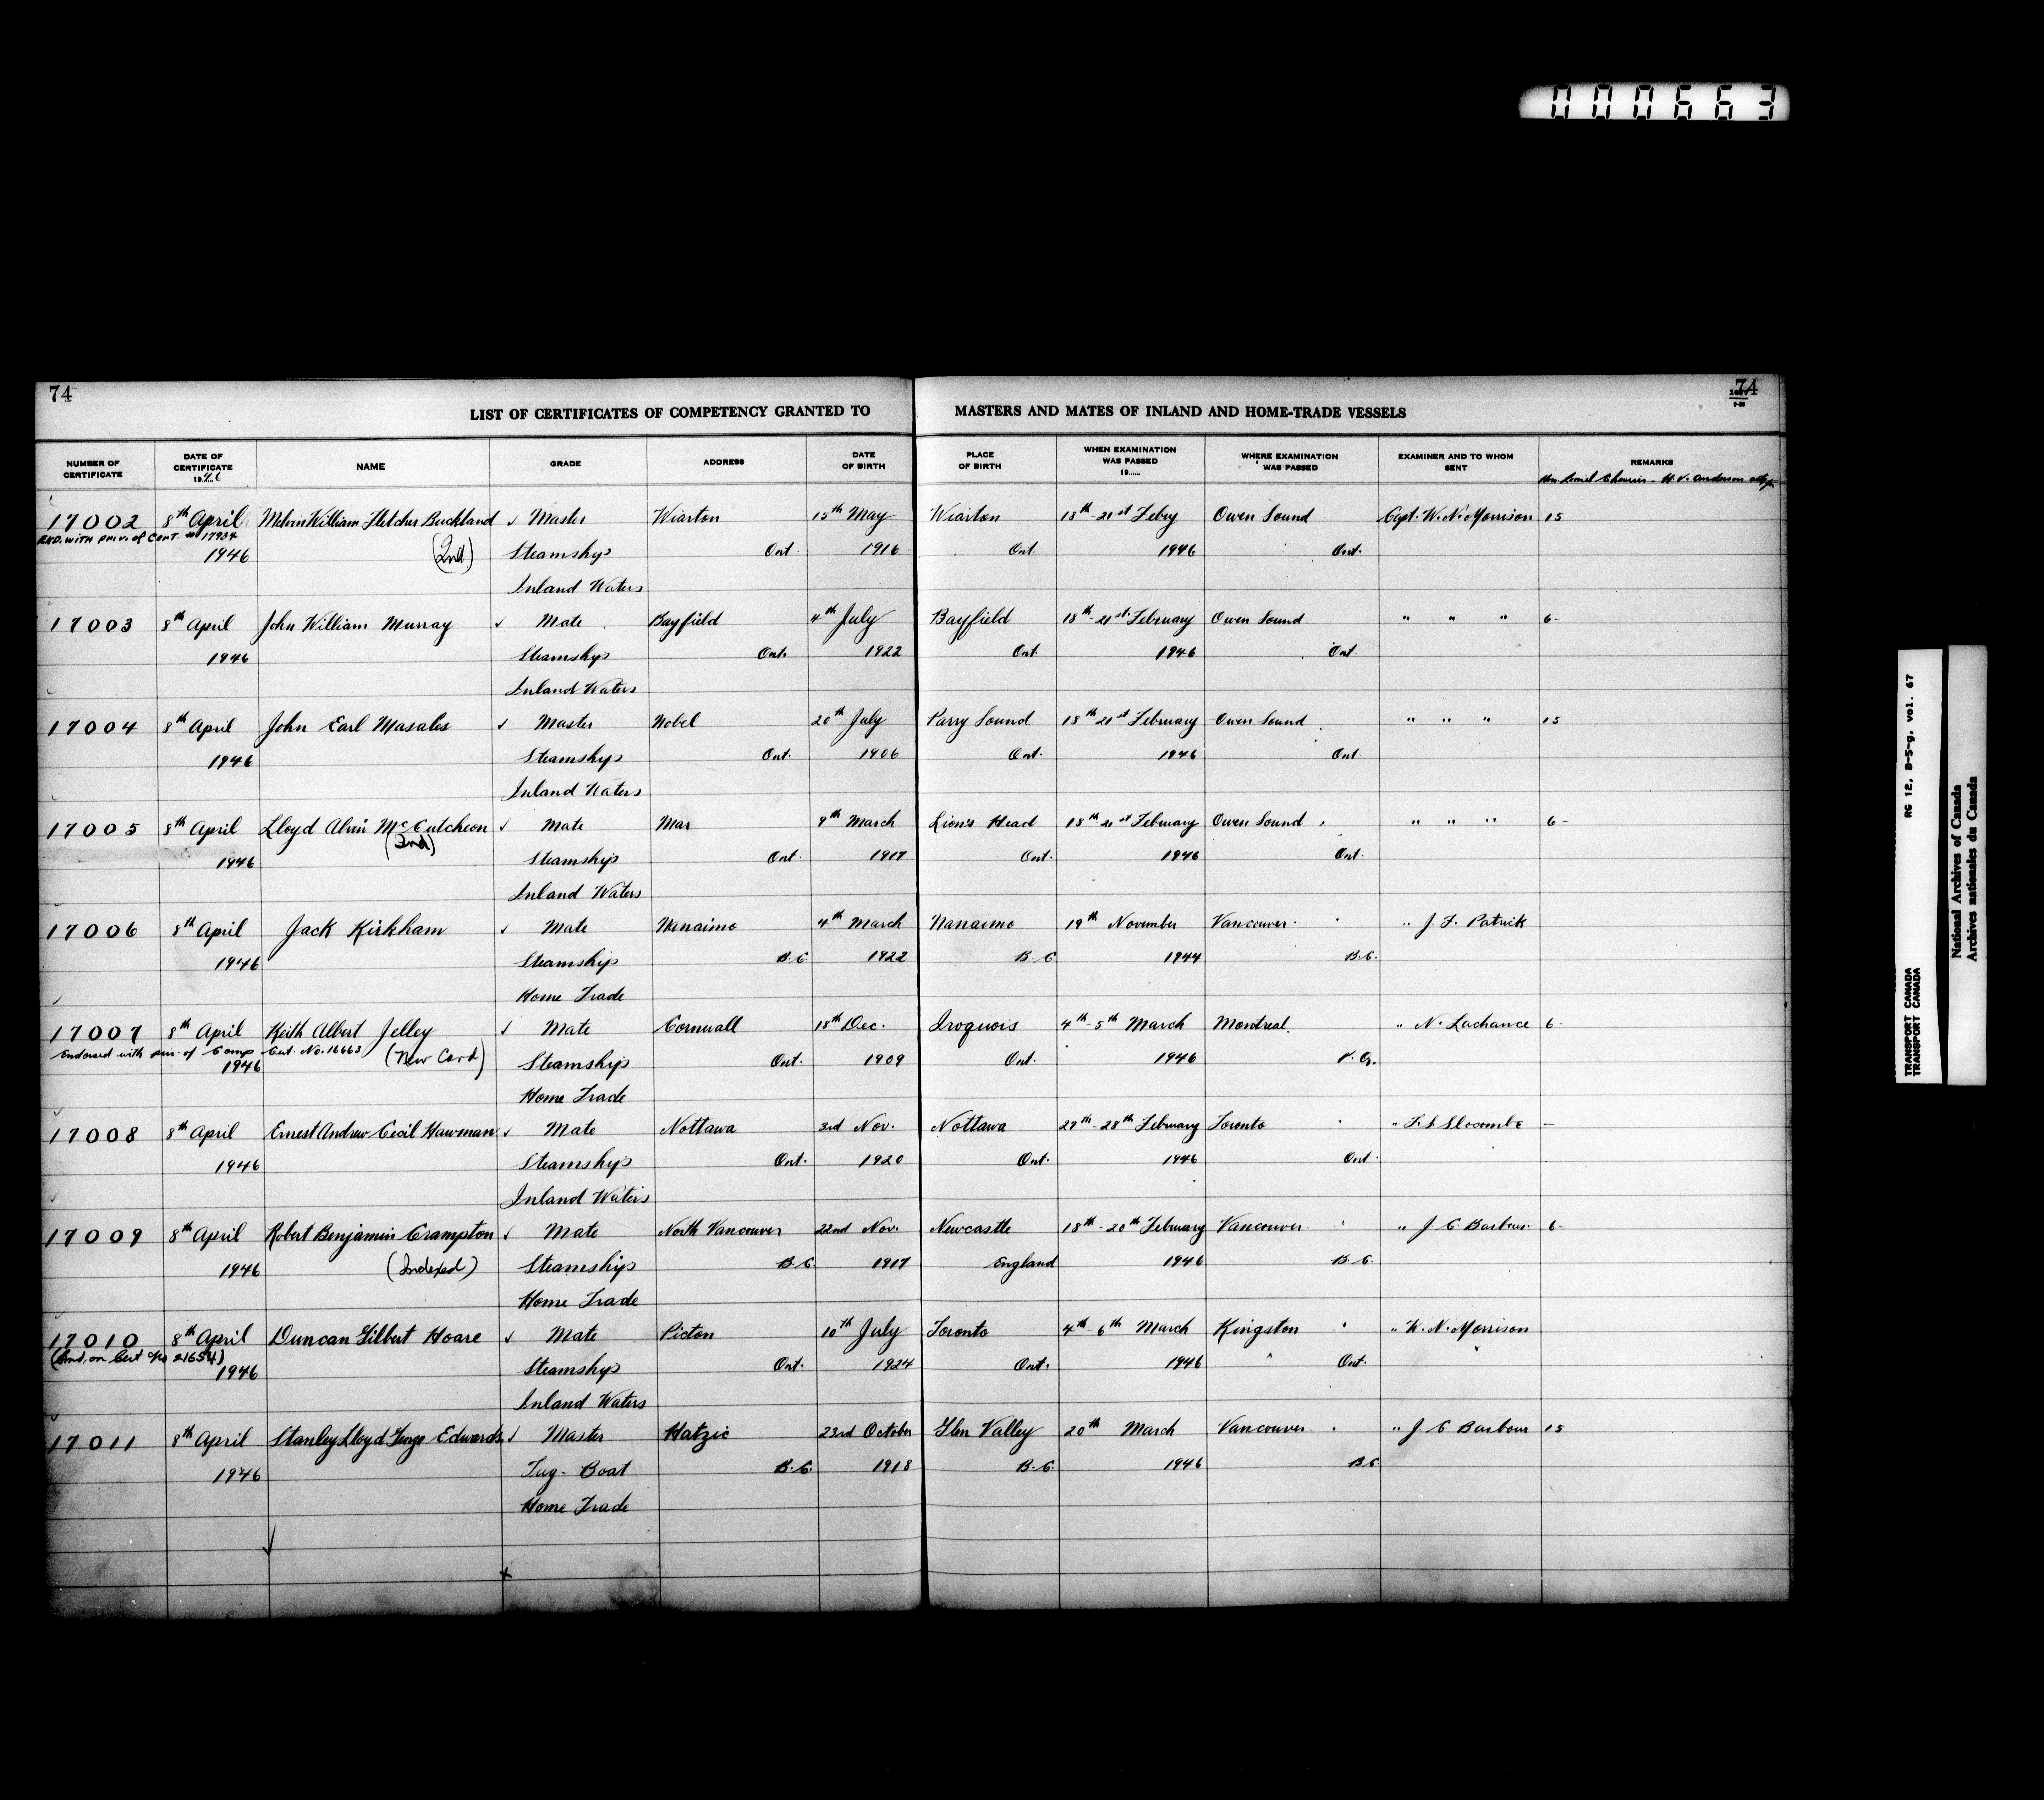 000663
74
74
LIST OF CERTIFICATES OF COMPETENCY GRANTED TO MASTERS AND MATES OF INLAND AND HOME-TRADE VESSELS
NUMBER OF CERTIFICATE DATE OF CERTIFICATE 1946 NAME GRADE ADDRESS DATE OF BIRTH PLACE OF BIRTH WHEN EXAMINATION WAS PASSED 19...... WHERE EXAMINATION WAS PASSED EXAMINER AND TO WHOM SENT REMARKS
Hon. Lionel Chevrier - H.V. Anderson
17002 8th April Melvin William Fletcher Buckland ✓ Master Wiarton 15th May Wiarton 18th-21st Febry Owen Sound Capt. W. N. Morrison 15
END. WITH PRIV. of CERT. No 17934
1946 (Ind) Steamships Ont. 1916 Ont. 1946 Ont.
Inland Waters
17003 8th April John William Murray ✓ Mate Bayfield 4th July Bayfield 18th-21st February Owen Sound " " " 6-
1946 Steamships Ont. 1922 Ont. 1946 Ont.
Inland Waters
17004 8th April John Earl Masales ✓ Master Nobel 20th July Parry Sound 18th-21st February Owen Sound " " " 15
1946 Steamships Ont. 1906 Ont. 1946 Ont.
Inland Waters
17005 8th April Lloyd Alvin McCutcheon ✓ Mate Mar 9th March Lion's Head 18th-21st February Owen Sound " " " 6-
(Ind)
1946 Steamships Ont. 1917 Ont. 1946 Ont.
Inland Waters
17006 8th April Jack Kirkham ✓ Mate Nanaimo 4th March Nanaimo 19th November Vancouver " J. F. Patrick
1946 Steamship B.C. 1922 B.C. 1944 B.C.
Home Trade
17007 8th April Keith Albert Jelley ✓ Mate Cornwall 18th Dec. Iroquois 4th-5th March Montreal " N. Lachance 6-
Endorsed with priv. of Comp Cert. No. 16663 (New Card)
1946 Steamships Ont. 1909 Ont. 1946 P.Q.
Home Trade
17008 8th April Ernest Andrew Cecil Hawman ✓ Mate Nottawa 3rd Nov. Nottawa 27th-28th February Toronto " F. S. Slocombe -
1946 Steamships Ont. 1920 Ont. 1946 Ont.
Inland Waters
17009 8th April Robert Benjamin Crampton ✓ Mate North Vancouver 22nd Nov. Newcastle 18th-20th February Vancouver " J C Barbour 6-
1946 (Indexed) Steamships B.C. 1917 England 1946 B.C.
Home Trade
17010 8th April Duncan Gilbert Hoare ✓ Mate Picton 10th July Toronto 4th-6th March Kingston " W. N. Morrison
(End. on Cert No 21654)
1946 Steamships Ont. 1924 Ont. 1946 " Ont.
Inland Waters
17011 8th April Stanley Lloyd Edwards ✓ Master Hatzic 23rd October Glen Valley 20th March Vancouver " J C Barbour 15
1946 Tug-Boat B.C. 1918 B.C. 1946 B.C.
Home Trade
TRANSPORT CANADA RG 12, B-5-g, vol. 67
TRANSPORT CANADA
National Archives of Canada
Archives nationales du Canada